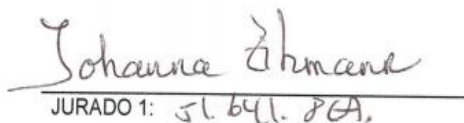 Johanna Zihmann
JURADO 1: 51.641.